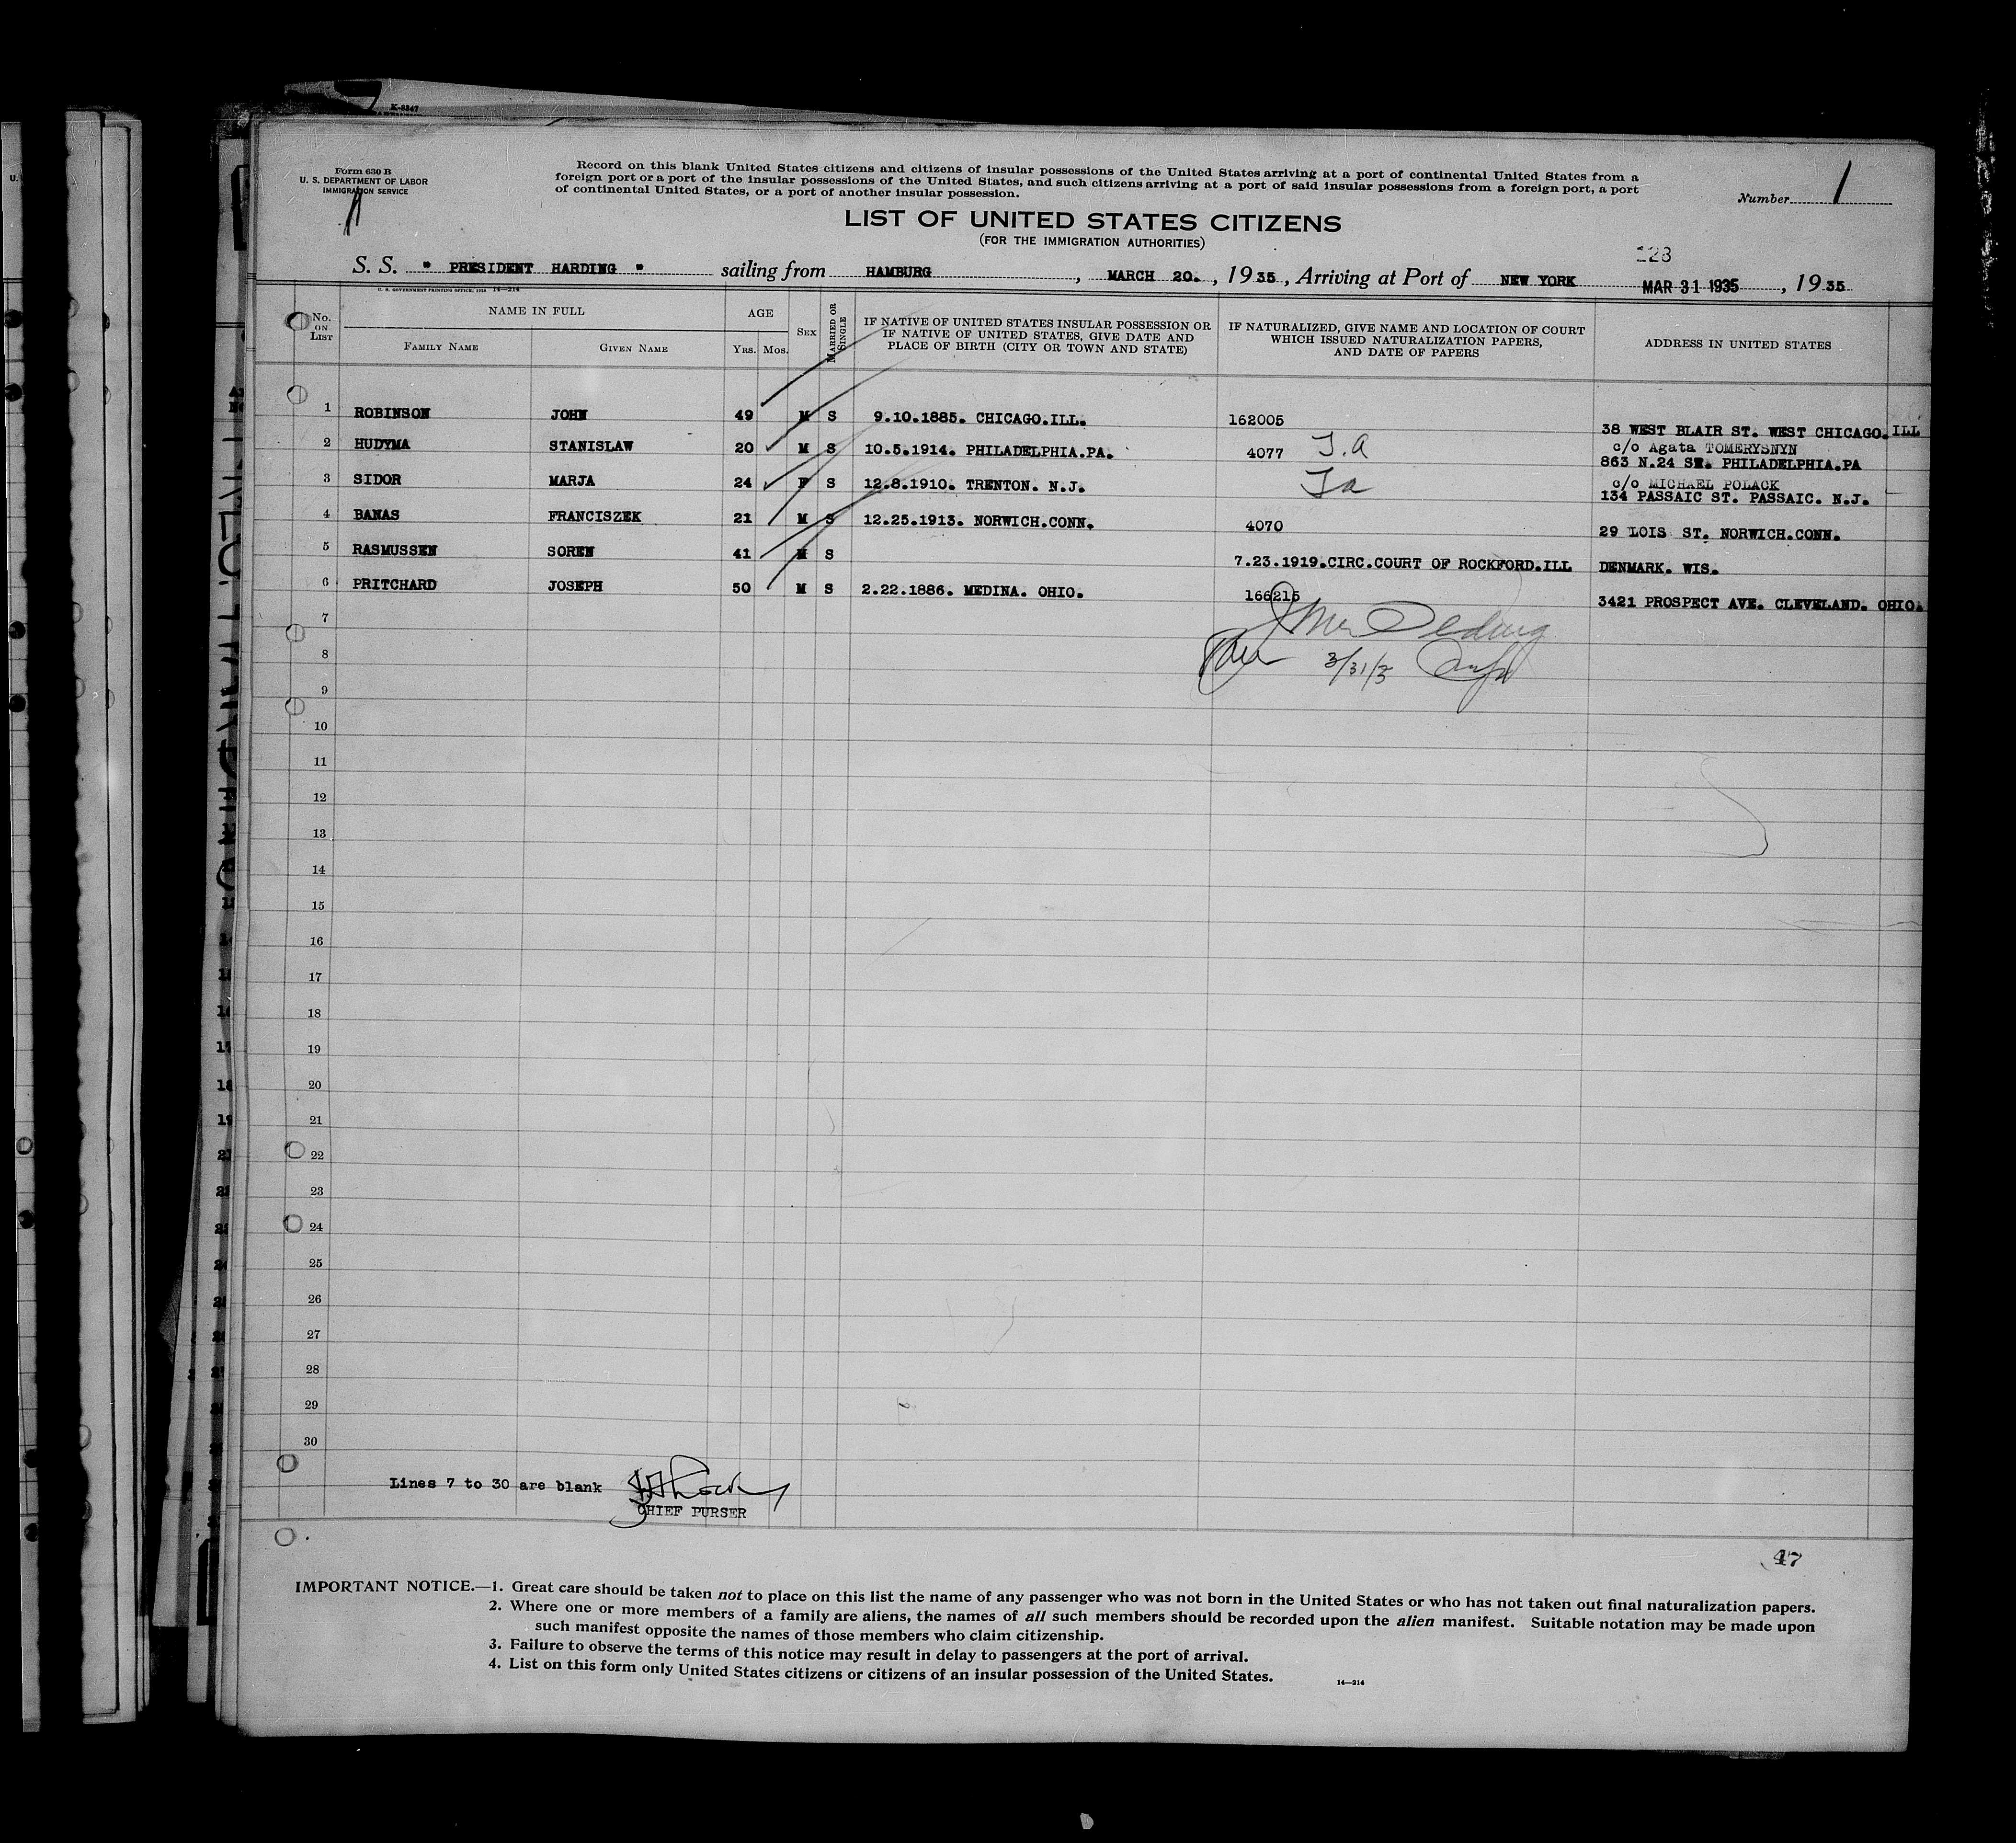 K-8847
Form 630 B
U. S. DEPARTMENT OF LABOR
IMMIGRATION SERVICE
Record on this blank United States citizens and citizens of insular possessions of the United States arriving at a port of continental United States from a
foreign port or a port of the insular possessions of the United States, and such citizens arriving at a port of said insular possessions from a foreign port, a port
of continental United States, or a port of another insular possession.
Number 1
LIST OF UNITED STATES CITIZENS
(FOR THE IMMIGRATION AUTHORITIES)
128
S. S. " PRESIDENT HARDING " sailing from HAMBURG, MARCH 20., 1935, Arriving at Port of NEW YORK MAR 31 1935, 1935
U. S. GOVERNMENT PRINTING OFFICE: 14—214
No. ON LIST NAME IN FULL FAMILY NAME GIVEN NAME AGE YRS. MOS. SEX MARRIED OR SINGLE IF NATIVE OF UNITED STATES INSULAR POSSESSION OR IF NATIVE OF UNITED STATES, GIVE DATE AND PLACE OF BIRTH (CITY OR TOWN AND STATE) IF NATURALIZED, GIVE NAME AND LOCATION OF COURT WHICH ISSUED NATURALIZATION PAPERS, AND DATE OF PAPERS ADDRESS IN UNITED STATES
1 ROBINSON JOHN 49 M S 9.10.1885. CHICAGO.ILL. 162005 38 WEST BLAIR ST. WEST CHICAGO.ILL
2 HUDYMA STANISLAW 20 M S 10.5.1914. PHILADELPHIA.PA. 4077 T.A c/o Agata TOMERYSNYN
863 N.24 ST. PHILADELPHIA.PA
3 SIDOR MARJA 24 F S 12.8.1910. TRENTON. N.J. Ta c/o MICHAEL POLACK
134 PASSAIC ST. PASSAIC. N.J.
4 BANAS FRANCISZEK 21 M S 12.25.1913. NORWICH.CONN. 4070 29 LOIS ST. NORWICH.CONN.
5 RASMUSSEN SOREN 41 M S 7.23.1919.CIRC.COURT OF ROCKFORD.ILL DENMARK. WIS.
6 PRITCHARD JOSEPH 50 M S 2.22.1886. MEDINA. OHIO. 166215 3421 PROSPECT AVE. CLEVELAND. OHIO.
7
8 3/31/3
9
10
11
12
13
14
15
16
17
18
19
20
21
22
23
24
25
26
27
28
29
30
Lines 7 to 30 are blank
CHIEF PURSER
47
IMPORTANT NOTICE.—1. Great care should be taken not to place on this list the name of any passenger who was not born in the United States or who has not taken out final naturalization papers.
2. Where one or more members of a family are aliens, the names of all such members should be recorded upon the alien manifest. Suitable notation may be made upon
such manifest opposite the names of those members who claim citizenship.
3. Failure to observe the terms of this notice may result in delay to passengers at the port of arrival.
4. List on this form only United States citizens or citizens of an insular possession of the United States.
14—214